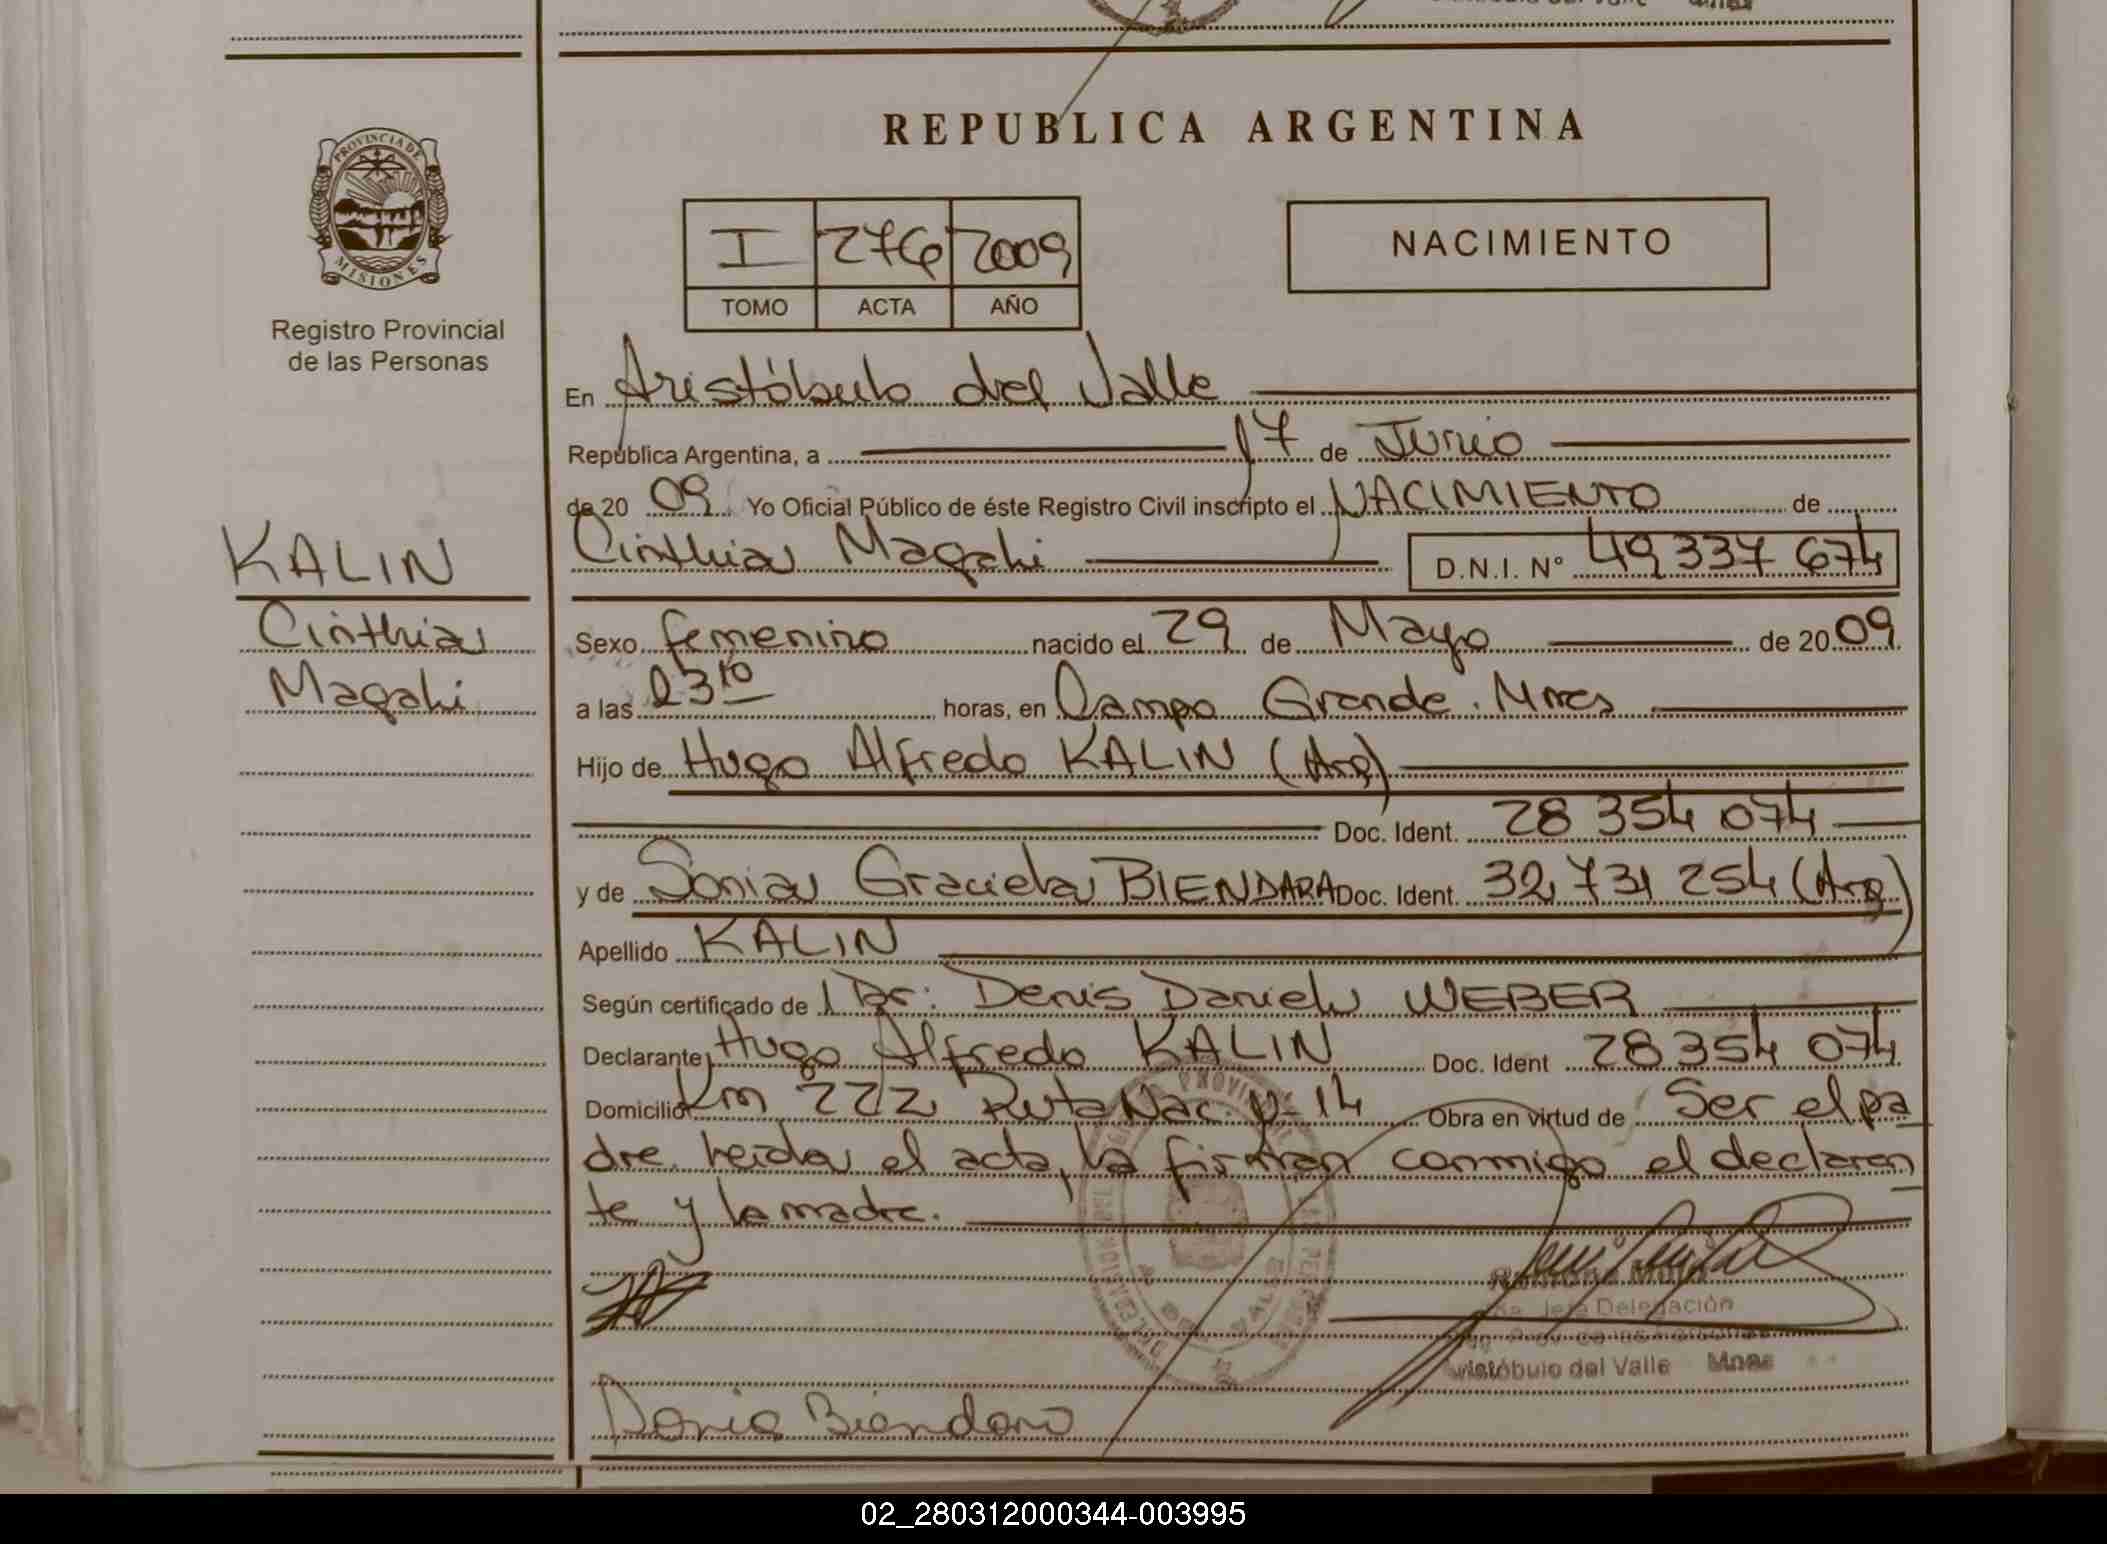 PROVINCIA DE
MISIONES
Registro Provincial
de las Personas
KALIN
Cinthia
Magali
REPUBLICA ARGENTINA
I 276 2009
TOMO ACTA AÑO
NACIMIENTO
En Aristóbulo del Valle
República Argentina, a 17 de Junio
de 20 09 Yo Oficial Público de éste Registro Civil inscripto el NACIMIENTO de
Cinthia Magali D.N.I. N° 49 337 674
Sexo femenino nacido el 29 de Mayo de 20 09
a las 23 10 horas, en Campo Grande. Mnes
Hijo de Hugo Alfredo KALIN (Arg)
Doc. Ident. 28 354 074
y de Sonia Graciela BIENDARA Doc. Ident. 32 731 254 (Arg)
Apellido KALIN
Según certificado de l Dr: Denis Daniel WEBER
Declarante Hugo Alfredo KALIN Doc. Ident 28 354 074
Domicilio Km 222 Ruta Nac. Nº 14 Obra en virtud de Ser el pa
dre. leida el acta, la firman conmigo el declaran
te y la madre.
Jefa Delegación
Aristóbulo del Valle Mnes
Sonia Biendara
02_280312000344-003995